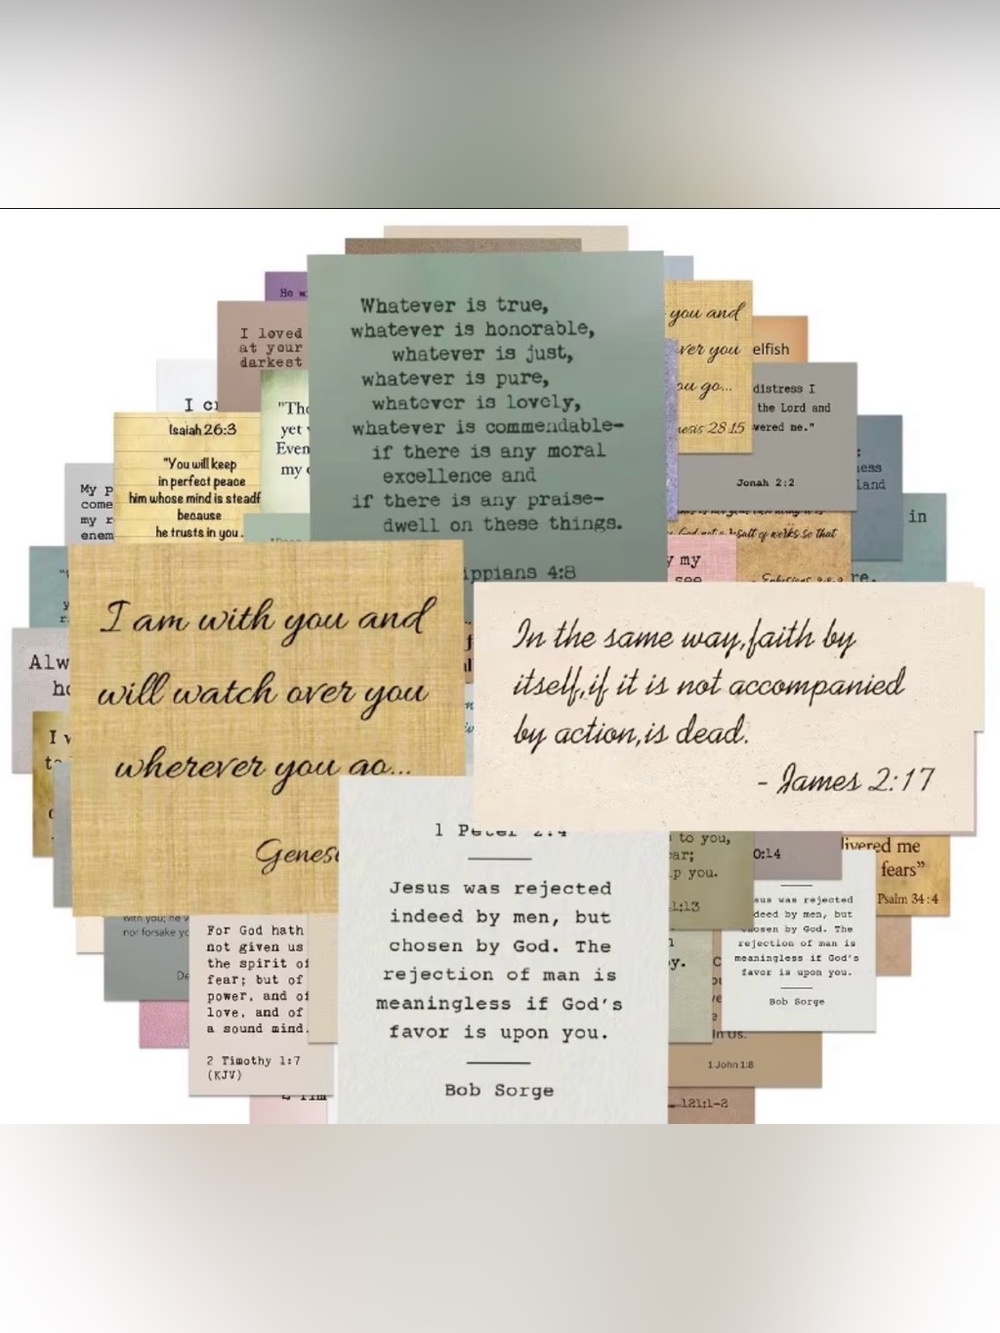 He w
I loved
at your
darkest
I cr
"Tho
yet
Even
my
Isaiah 26:3
"You will keep
in perfect peace
him whose mind is steadf
because
he trusts in you.
My p
come
my r
enem
Whatever is true,
whatever is honorable,
whatever is just,
whatever is pure,
whatever is lovely,
whatever is commendable-
if there is any moral
excellence and
if there is any praise-
dwell on these things.
ippians 4:8
you and
ver you
ou go...
nesis 28:15
elfish
distress I
the Lord and
wered me."
Jonah 2:2
ness
land
in
re.
y my
see
Alw
ho
I am with you and
will watch over you
wherever you go...
Genes
In the same way,faith by
itself,if it is not accompanied
by action,is dead.
- James 2:17
1 Peter 2:4
Jesus was rejected
indeed by men, but
chosen by God. The
rejection of man is
meaningless if God's
favor is upon you.
Bob Sorge
to you,
ear;
lp you.
1:13
0:14
livered me
fears”
Psalm 34:4
sus was rejected
deed by men, but
hosen by God. The
rejection of man is
meaningless if God's
favor is upon you.
Bob Sorge
with you; he
nor forsake yo
De
For God hath
not given us
the spirit of
fear; but of
power, and of
love, and of
a sound mind.
2 Timothy 1:7
(KJV)
2 Tim
y.
in Us.
1 John 1:8
121:1-2